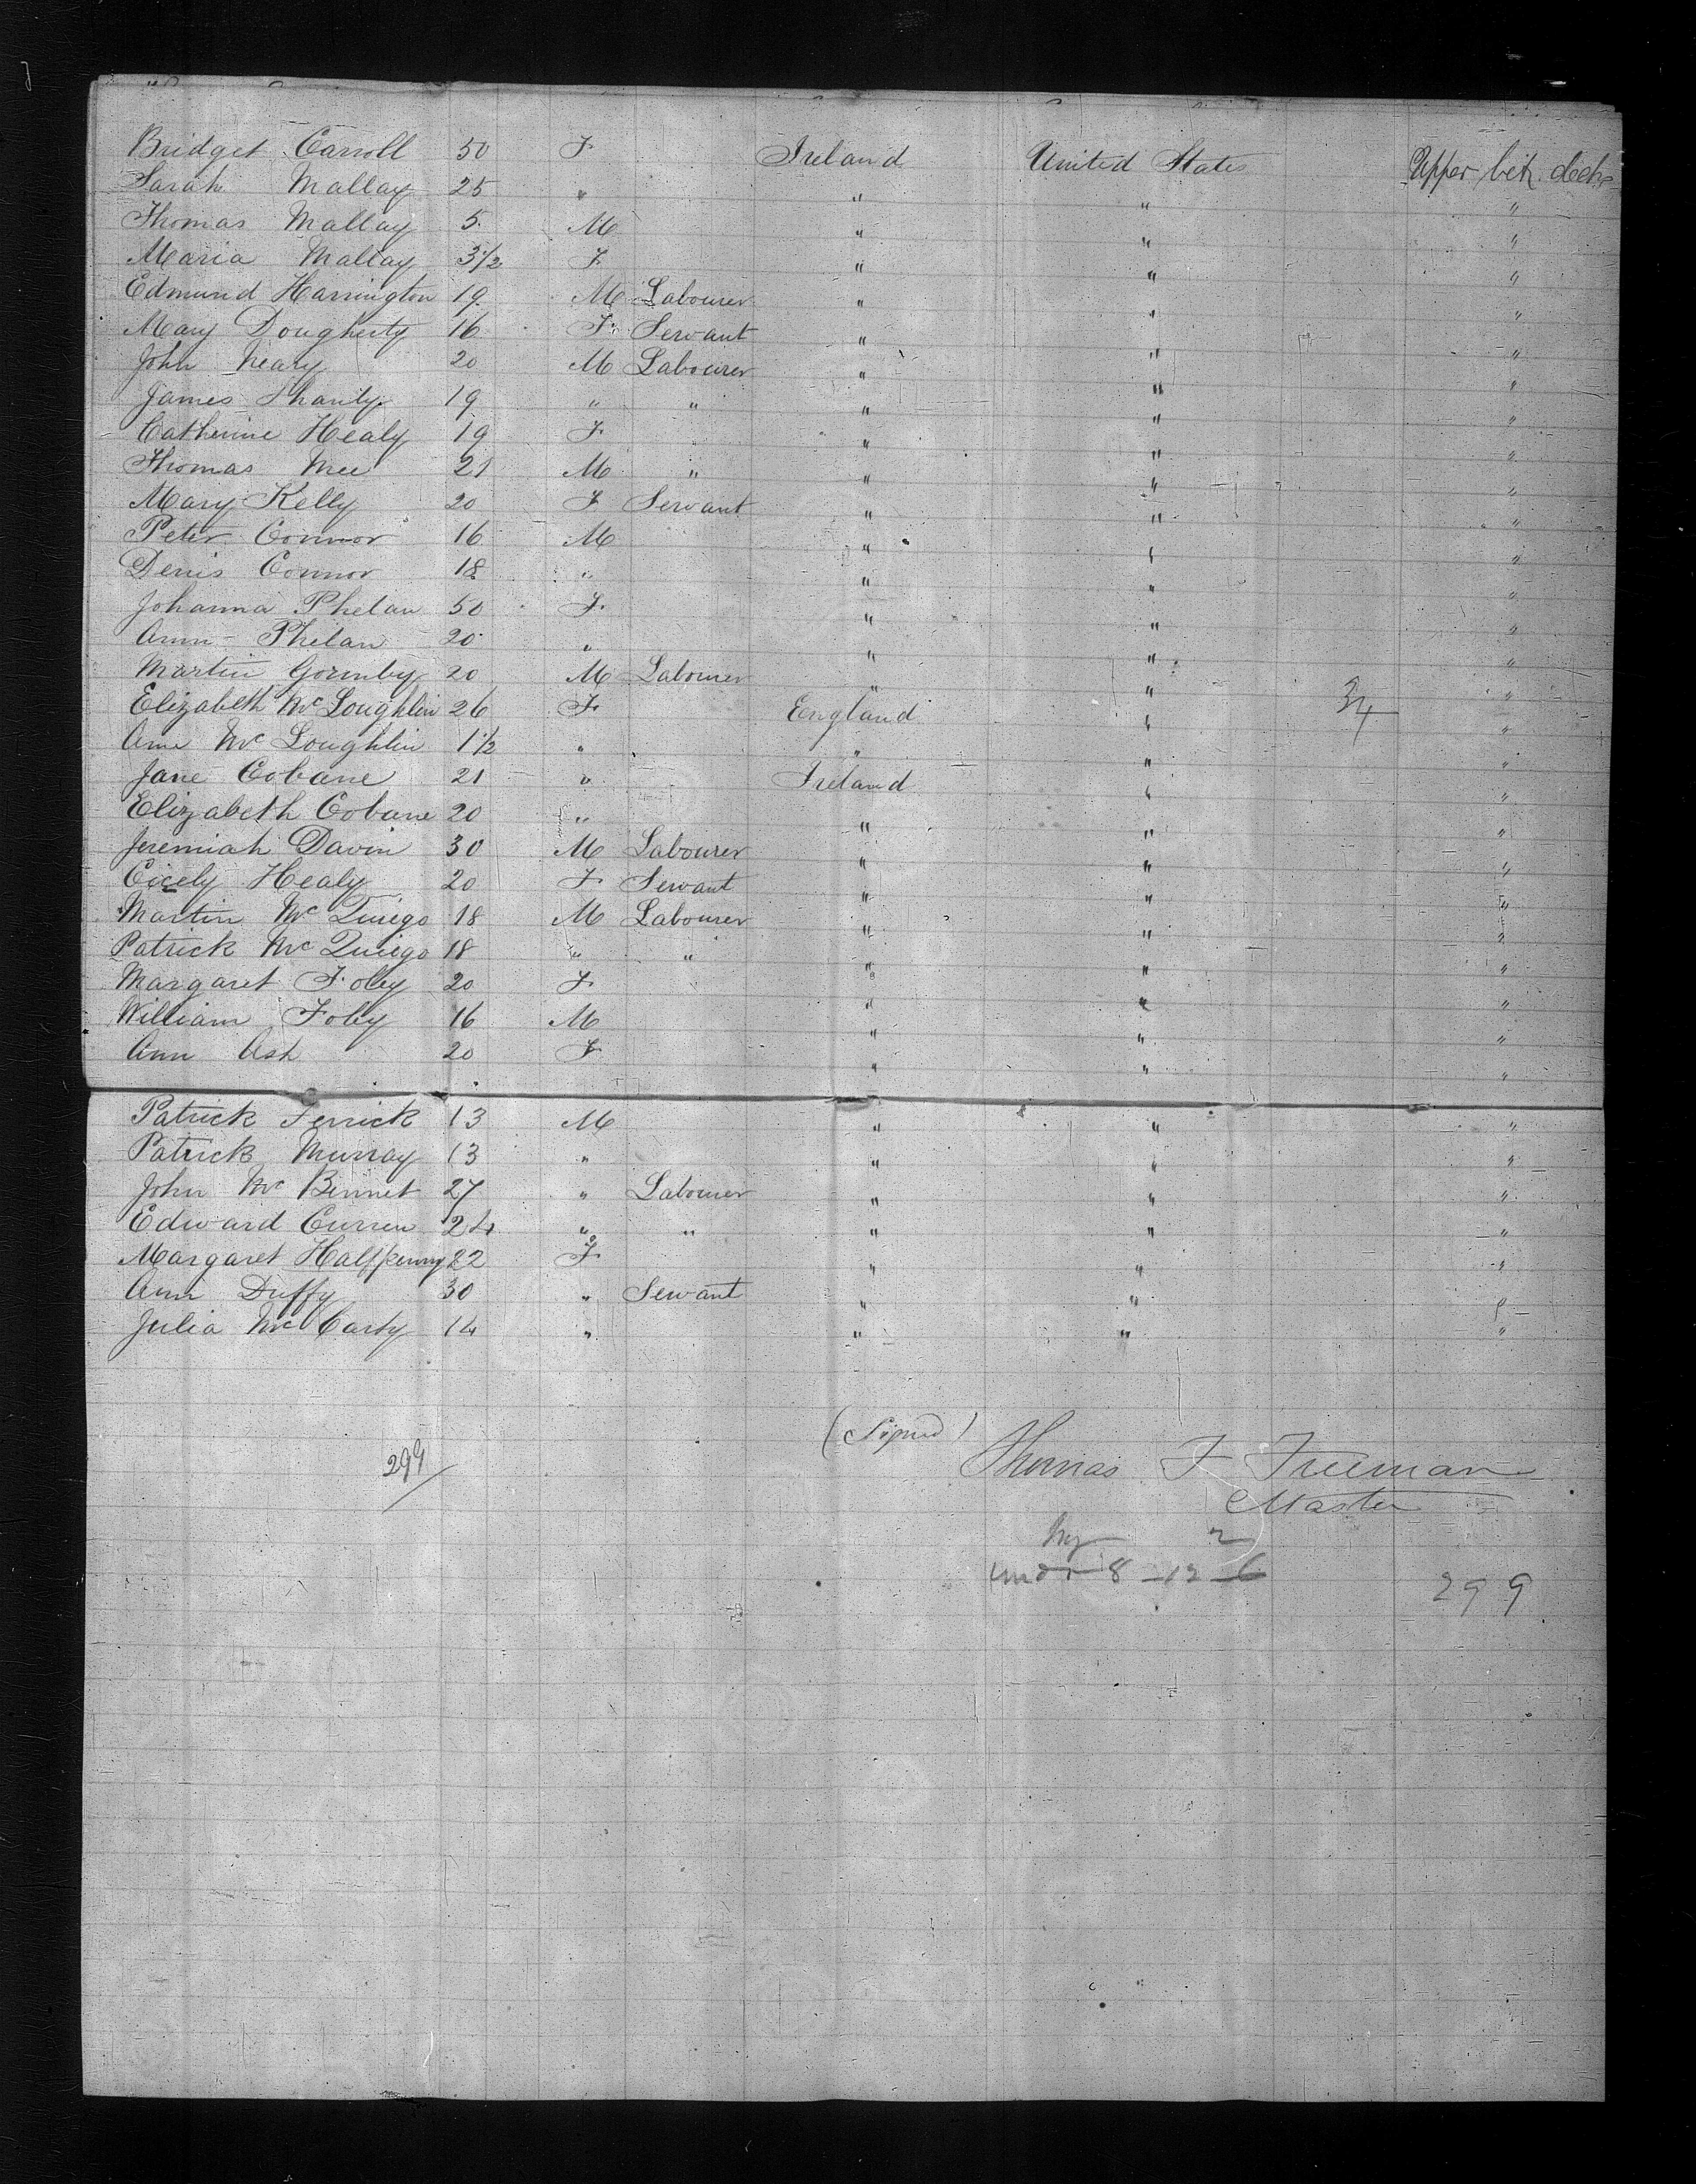 Bridget Carroll 50 F Ireland United States Upper bet. decks
Sarah Mallay 25 " " " "
Thomas Mallay 5 M " " "
Maria Mallay 3 1/2 F " " "
Edmund Harrington 19 M Labourer " " "
Mary Dougherty 16 F Servant " " "
John Neary 20 M Labourer " " "
James Shanly 19 " " " " "
Catherine Healy 19 F " " "
Thomas Mee 21 M " " " "
Mary Kelly 20 F Servant " " "
Peter Connor 16 M " " "
Denis Connor 18 " " " "
Johanna Phelan 50 F " " "
Ann Phelan 20 " " " "
Martin Gormby 20 M Labourer " " "
Elizabeth McLoughlin 26 F England " 34 "
Ann McLoughlin 1 1/2 " " " "
Jane Cobane 21 " Ireland " "
Elizabeth Cobane 20 " " " "
Jeremiah Davin 30 M Labourer " " "
Cicely Healy 20 F Servant " " "
Martin Mc Quiego 18 M Labourer " " "
Patrick Mc Quiego 18 " " " " "
Margaret Foley 20 F " " "
William Foley 16 M " " "
Ann Ash 20 F " " "
Patrick Ferrick 13 M " " "
Patrick Murray 13 " " " "
John Mc Bennet 27 " Labourer " " "
Edward Curren 24 " " " " "
Margaret Halfpenny 22 F " " "
Ann Duffy 30 " Servant " " "
Julia McCarty 14 " " " "
(Signed)
299
Thomas F Freeman
Master
2
under 8 - 12 - 6
299